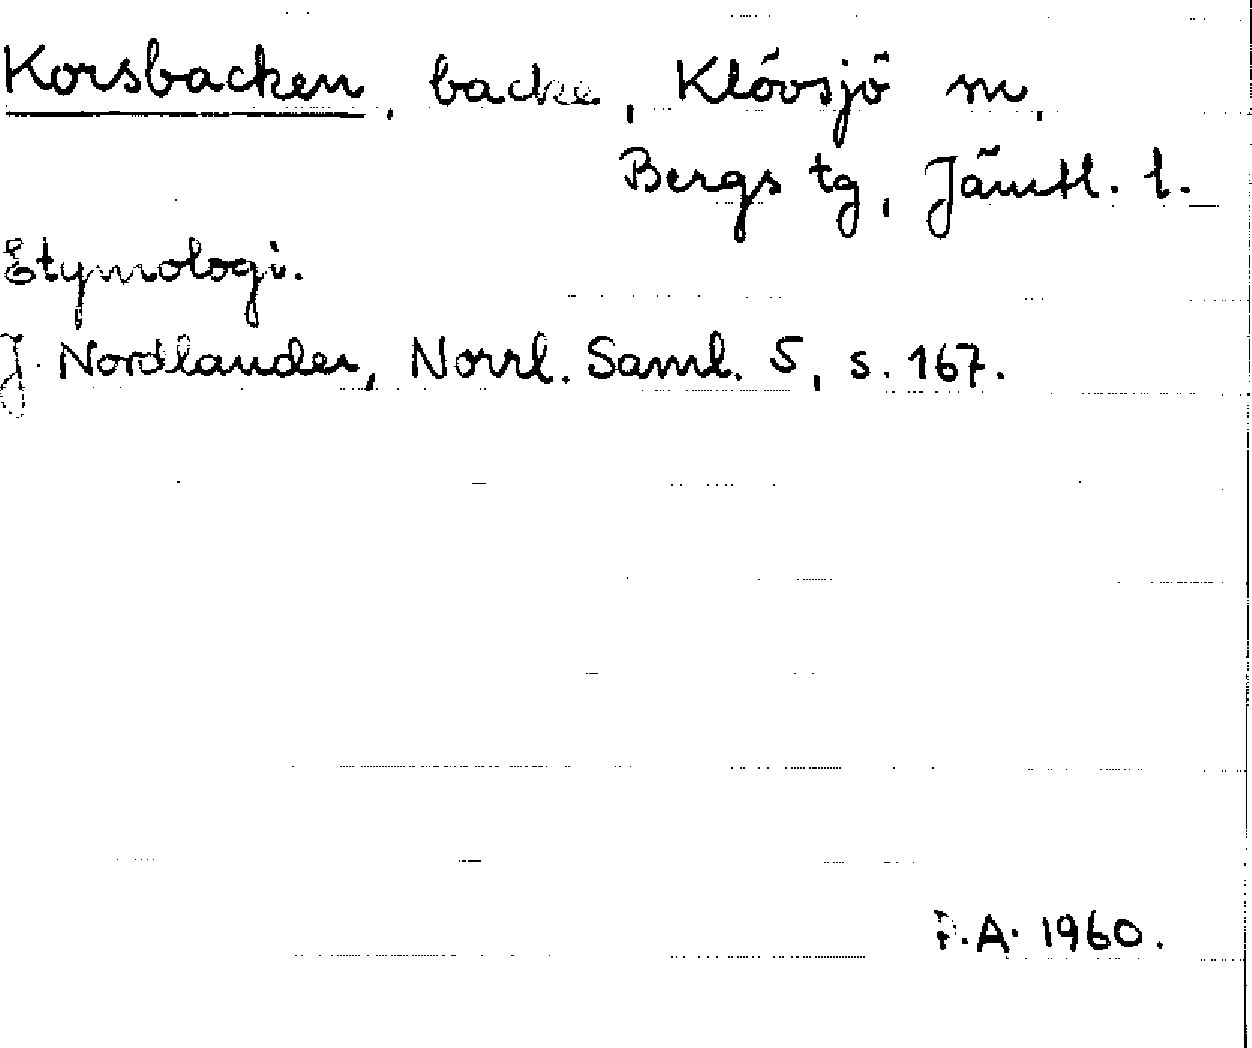 Korsbacken, backe, Klövsjö m,
Bergs tg, Jämtl. l.
Etymologi.
J. Nordlander, Norrl. Saml. 5, s. 167.
A. 1960.